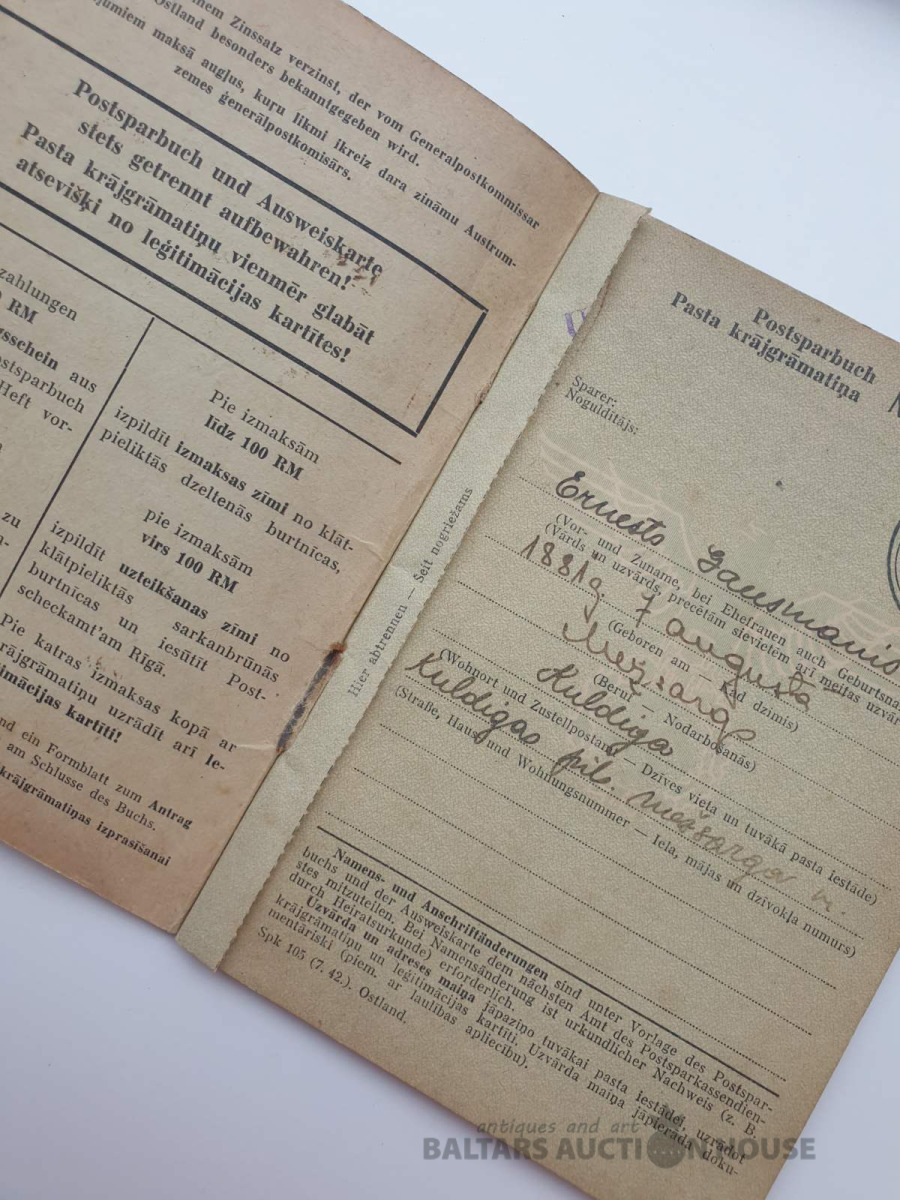 nem Zinssatz verzinst, der vom Generalpostkommissar
Ostland besonders bekanntgegeben wird.
ājumiem maksā augļus, kuŗu likmi ikreiz dara zināmu Austrum-
zemes ģenerālpostkomisārs.
Postsparbuch und Ausweiskarte
stets getrennt aufbewahren!
Pasta krājgrāmatiņu vienmēr glabāt
atsevišķi no leģitimācijas kartītes!
zahlungen
0 RM
gsschein aus
ostsparbuch
Heft vor-
zu
Pie izmaksām
līdz 100 RM
izpildīt izmaksas zīmi no klāt-
pieliktās dzeltenās burtnīcas,
pie izmaksām
virs 100 RM
izpildīt uzteikšanas zīmi no
klātpieliktās sarkanbrūnās
burtnīcas un iesūtīt Post-
scheckamt'am Rīgā.
Pie katras izmaksas kopā ar
krājgrāmatiņu uzrādīt arī le-
imācijas kartīti!
nd ein Formblatt zum Antrag
am Schlusse des Buchs.
krājgrāmatiņas izprasīšanai
Hier abtrennen — Šeit nogriežams
Postsparbuch
Pasta krājgrāmatiņa
N
Sparer:
Noguldītājs:
Ernests Gausmanis
(Vor- und Zuname, bei Ehefrauen auch Geburtsna
(Vārds un uzvārds, precētām sievietēm arī meitas uzvār
1881g. 7 augustā
(Geboren am — Kad dzimis)
Mežsarg
(Beruf — Nodarbošanās)
Kuldīga
(Wohnort und Zustellpostamt — Dzīves vieta un tuvākā pasta iestāde)
Kuldīgas pil. mežsarga m.
(Straße, Haus- und Wohnungsnummer — Iela, mājas un dzīvokļa numurs)
Namens- und Anschriftänderungen sind unter Vorlage des Postspar-
buchs und der Ausweiskarte dem nächsten Amt des Postsparkassendien-
stes mitzuteilen. Bei Namensänderung ist urkundlicher Nachweis (z. B.
durch Heiratsurkunde) erforderlich.
Uzvārda un adreses maiņa jāpaziņo tuvākai pasta iestādei, uzrādot
krājgrāmatiņu un leģitimācijas kartīti. Uzvārda maiņa jāpierāda doku-
mentāriski (piem. ar laulības apliecību).
Spk 105 (7. 42.). Ostland.
antiques and art
BALTARS AUCTION HOUSE